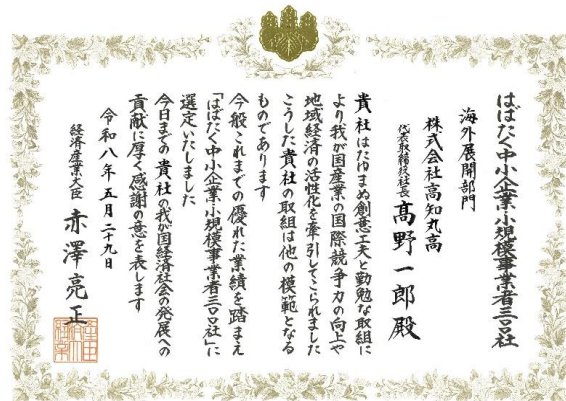 はばたく中小企業・小規模事業者三〇〇社
海外展開部門
株式会社高知丸高
代表取締役社長 髙野一郎殿
貴社はたゆまぬ創意工夫と勤勉な取組に
より我が国産業の国際競争力の向上や
地域経済の活性化を牽引してこられました
こうした貴社の取組は他の模範となる
ものであります
今般これまでの優れた業績を踏まえ
「はばたく中小企業・小規模事業者三〇〇社」に
選定いたしました
今日までの貴社の我が国経済社会の発展への
貢献に厚く感謝の意を表します
令和八年五月二十九日
経済産業大臣 赤澤亮正